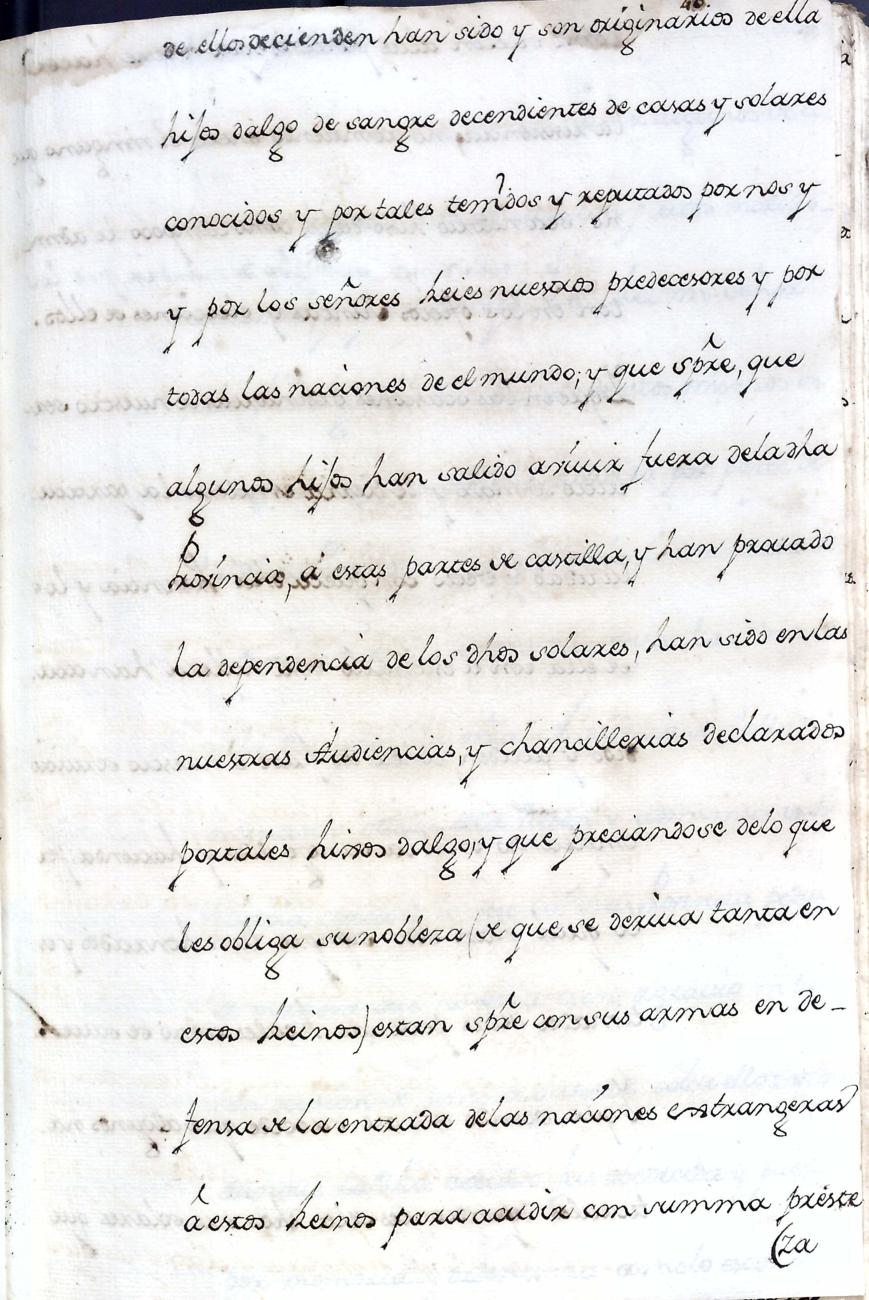 de ellos decienden han sido y son originarios de ella
hijos dalgo de sangre decendientes de casas y solares
conocidos y por tales tenidos y reputados por nos y
y por los señores Reies nuestros predecesores y por
todas las naciones de el mundo; y que spre, que
algunos hijos han salido aviuir fuera dela dha
Provincia, á estas partes de castilla, y han prouado
la dependencia de los dhos solares, han sido en las
nuestras Audiencias, y chancillerias declarados
portales hixos dalgo, y que preciandose delo que
les obliga su nobleza (de que se deriua tanta en
estos Reinos) estan spre con sus armas en de-
fensa de la entrada delas naciones extrangeras
á estos Reinos para acudir con summa preste
(za